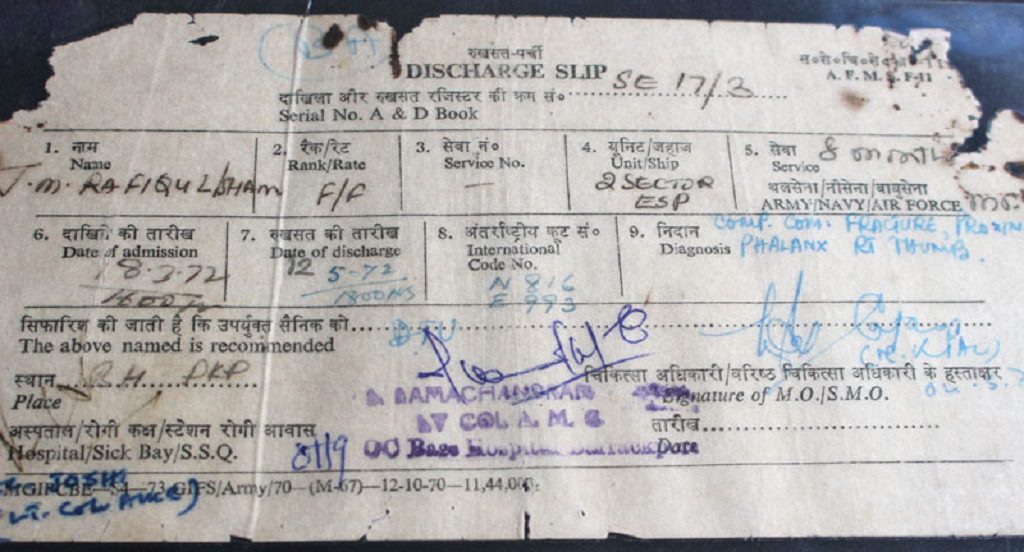 रुखसत-पर्ची
DISCHARGE SLIP
A. F. M. S. F-11
दाखिला और रुखसत रजिस्टर की क्रम सं० SE 17/3
Serial No. A & D Book
1. नाम
Name
RAFIQUL ISHAM
2. रैंक/रेट
Rank/Rate
F/F
3. सेवा नं०
Service No.
—
4. यूनिट/जहाज
Unit/Ship
2 SECTOR
ESP
5. सेवा 8
Service
थलसेना/नौसेना/वायुसेना
ARMY/NAVY/AIR FORCE
6. दाखिले की तारीख
Date of admission
8-3-72
7. रुखसत की तारीख
Date of discharge
12 5-72
1800 hrs
8. अंतर्राष्ट्रीय कूट सं०
International
Code No.
N 816
E 993
9. निदान
Diagnosis
COMP. COM. FRACURE, PROXIM
PHALANX RT THUMB.
सिफारिश की जाती है कि उपर्युक्त सैनिक को
The above named is recommended
स्थान B.H. DKP
Place
चिकित्सा अधिकारी/वरिष्ठ चिकित्सा अधिकारी के हस्ताक्षर
Signature of M.O./S.M.O.
RAMACHANDRAN
LT COL A. M. C
OC Base Hospital Barrackpore
अस्पताल/रोगी कक्ष/स्टेशन रोगी आवास
Hospital/Sick Bay/S.S.Q.
तारीख
Date
MGIPCBE—S4—73 GIFS/Army/70—(M-67)—12-10-70—11,44,000.
JOSHI
LT. COL AMC)